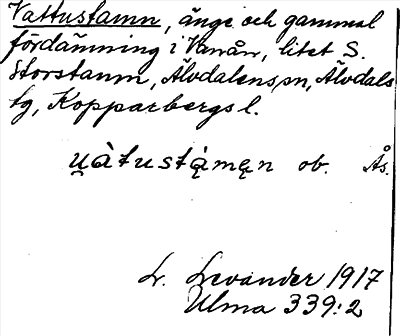 Vattustamn, änge och gammal
fördämning i Vanån, litet S.
Storstamm, Älvdalens sn, Älvdals
tg, Kopparbergs l.
u̯àtustą̀męn ob. Ås.
L. Levander 1917
Ulma 339:2